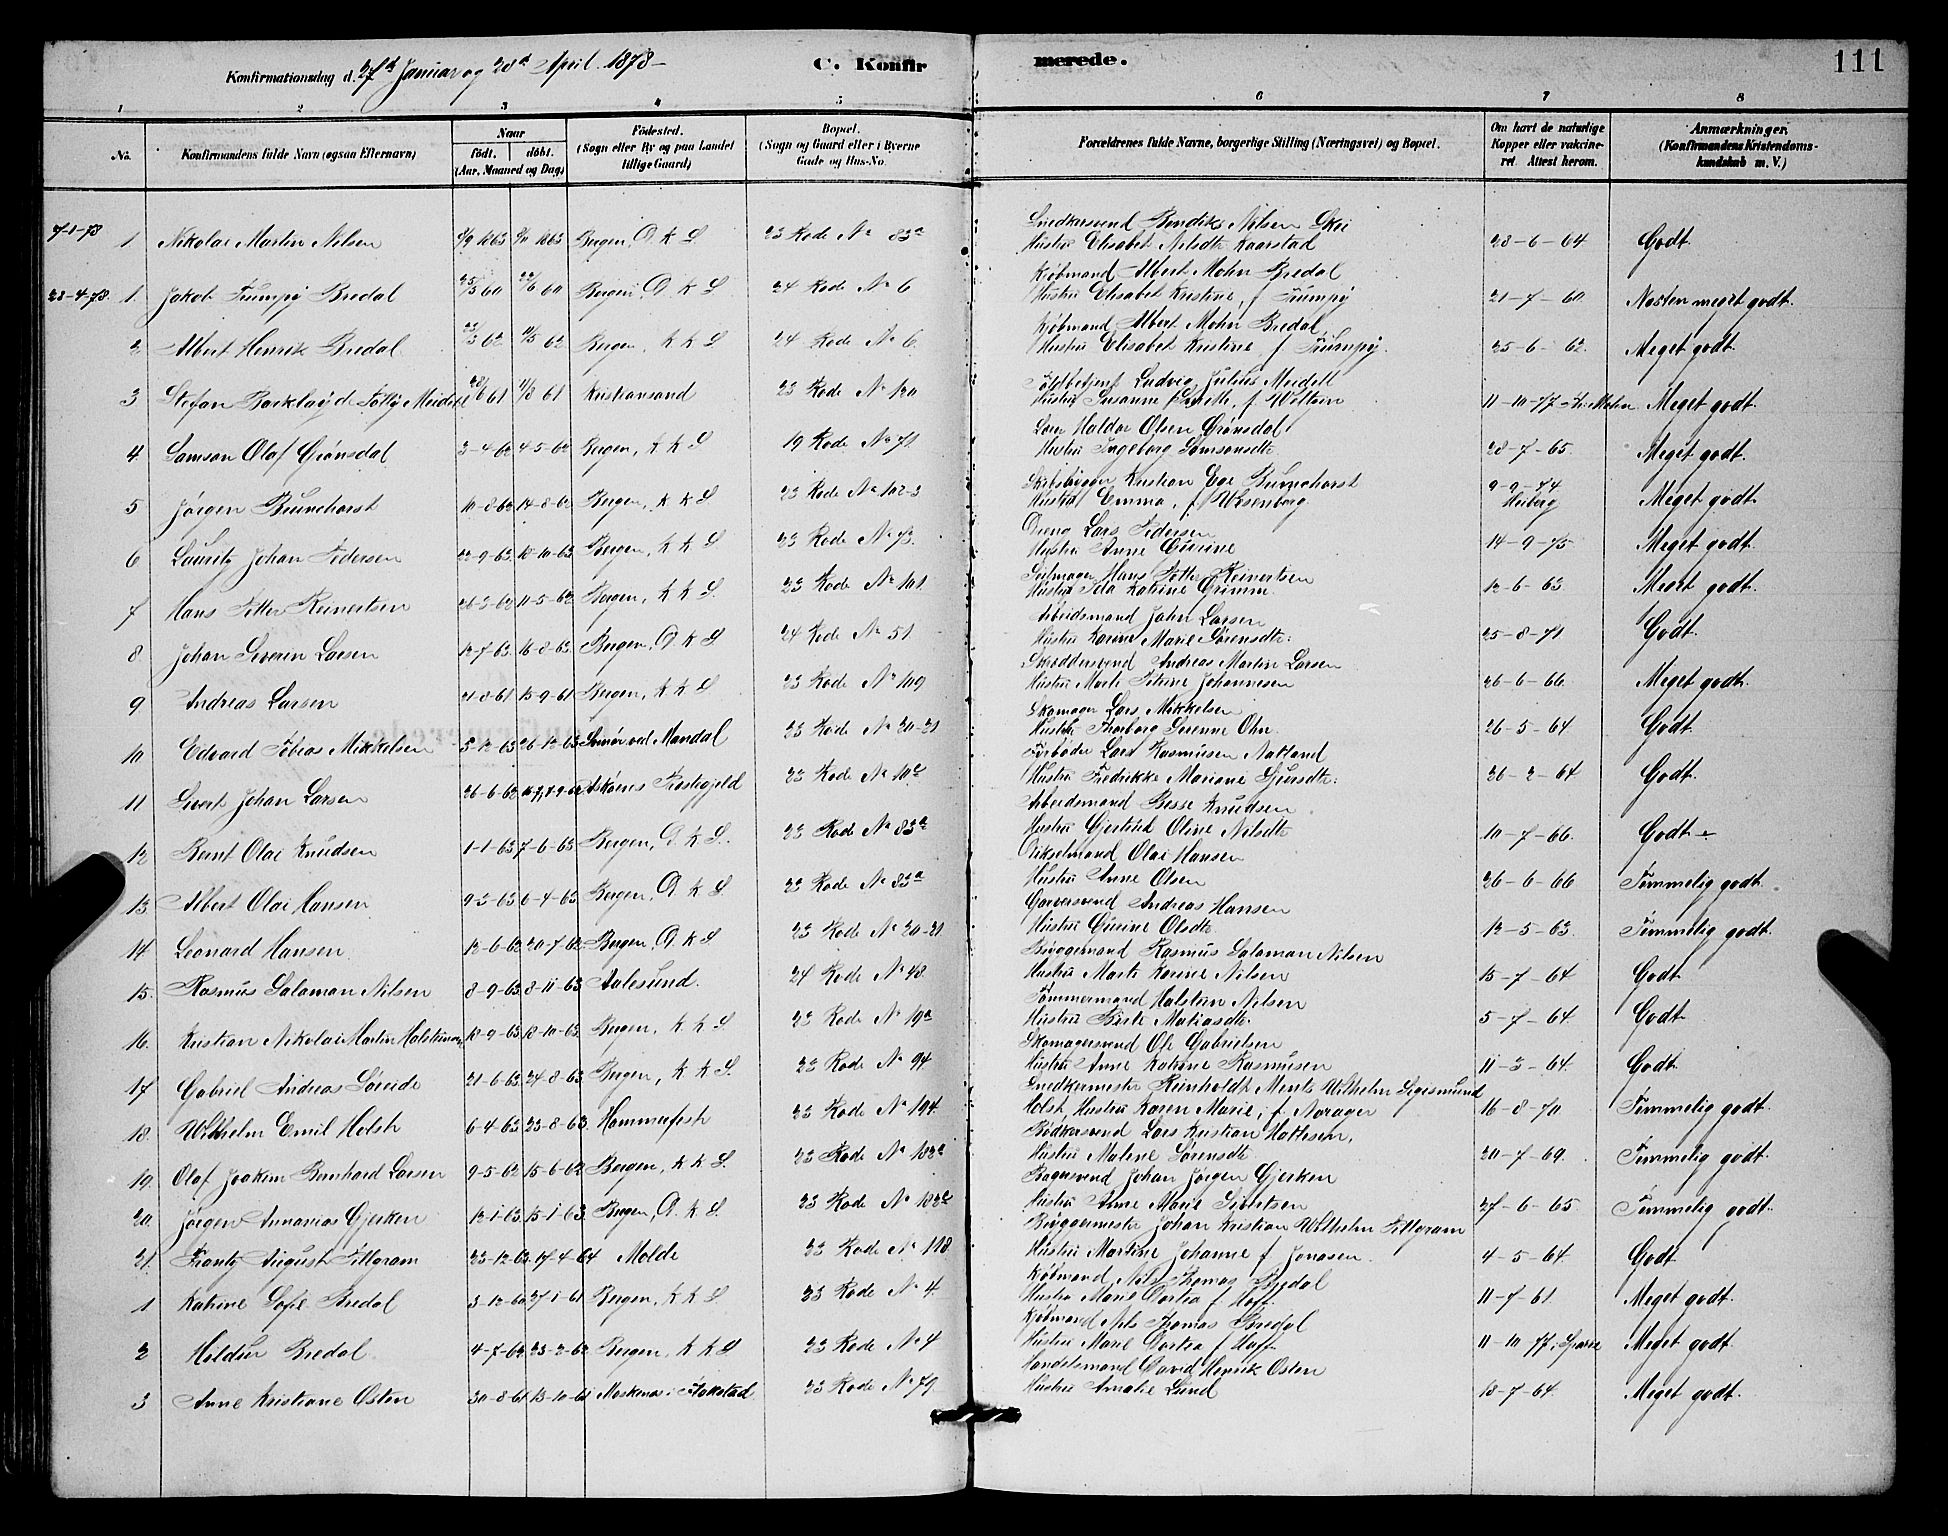 Konfirmationsdag d. 27de Januar og 28de April 1878 –
C. Konfirmerede.
111
1 2 3 4 5 6 7 8
No.
Konfirmandens fulde Navn (ogsaa Efternavn)
Naar
födt. döbt.
(Aar, Maaned og Dag)
Födested.
(Sogn eller By og paa Landet
tillige Gaard)
Bopæl.
(Sogn og Gaard eller i Byerne
Gade og Hus-No.
Forældrenes fulde Navne, borgerlige Stilling (Næringsvei) og Bopæl.
Om havt de naturlige
Kopper eller vakcine-
ret. Attest herom.
Anmærkninger.
(Konfirmandens Kristendoms-
kundskab m. V.)
1. Nikolai Martin Nilsen 1863 1863 Bergen, D K S 23 Rode No 83a
Snedkersvend Bendiks Nilsen
Hustru Elisabet Nilsdtr Kaarstad 28-6-64 Godt.
28-4-78. 1. Jakob Trumpy Bredal 60 60 Bergen, D K S 24 Rode No 6
Kjöbmand Albert Mohn Bredal
Hustru Elisabet Kristine, f. Trumpy 21-7-60. Næsten meget godt.
2 Albert Henrik Bredal 62 62 Bergen, K K S 24 Rode No 6
Kjöbmand Albert Mohn Bredal
Hustru Elisabet Kristine f. Trumpy. 25-6-62. Meget godt.
3 Stefan Meidell 61 61 Kristiansand 23 Rode No 120
Toldbetjent Ludvig Julius Meidell
Hustru Susanne f. 11-10-77 Meget godt.
4. Samson Olaf Grönsdal 3-4-62 4-5-62 Bergen, K K S 19 Rode No 71
Haldor Olsen Grönsdal
Hustru Ingeborg Samsonsdtr 28-7-65. Meget godt.
5 Jörgen Brunchorst 10-8-62 14-8-62 Bergen, K K S 23 Rode No 102-3
Skibsbygger Kristian Ege Brunchorst
Hustru Emma, f. Wesenberg 9-9-74 Heiberg Meget godt.
6 Lauritz Johan Pedersen 22-9-63 18-10-63 Bergen, K K S 23 Rode No 73.
Dreng Lars Pedersen
Hustru Anne Gurine 14-9-75 Meget godt.
7 Hans Petter Reinertsen 26-3-62 11-5-62 Bergen, K K S. 23 Rode No 101
Seilmager Hans Petter Reinertsen
Hustru Ida Katrine Grimm. 12-6-63 Meget godt.
8. Johan Severin Larsen 12-7-63 16-8-63 Bergen, D K S 24 Rode No 51.
Arbeidsmand John Larsen
Hustru Karen Marie Sörensdtr: 25-8-71 Godt.
9 Andreas Larsen 21-8-61 15-9-61 Bergen, K K S 23 Rode No 109
Skræddersvend Andreas Martin Larsen
Hustru Marte Petrine Johannesen 26-6-66. Meget godt.
10 Edvard Tobias Mikkelsen 5-12-63 26-12-63 ved Mandal 23 Rode No 20-21
Skomager Lars Mikkelsen
Hustru Thorborg Serenne 26-5-64 Godt.
11 Sivert Johan Larsen 26-6-62 Askøens Præstegjeld 23 Rode No 10
Lars Rasmusen Natland
Hustru Fredrikke Mariane Sjursdtr: 26-2-64 Godt.
12 Bernt Olai Knudsen 1-1-63 7-6-63 Bergen, D. K S. 23 Rode No 83a
Arbeidsmand Besse Knudsen
Hustru Gjertrud Oline Nilsdtr 10-7-66. Godt –
13 Albert Olai Hansen 9-3-63 6-4-63 Bergen, D K S 23 Rode No 83a
Olai Hansen
Hustru Anne Olsen 26-6-66 Temmelig godt.
14. Leonard Hansen. 12-6-62 20-7-62 Bergen, D. K S 23 Rode No 20-21
Garversvend Andreas Hansen
Hustru Gurine Olsdtr. 12-5-63. Temmelig godt.
15. Rasmus Salaman Nilsen 8-9-63 8-11-63 Aalesund. 24 Rode No 48.
Bryggemand Rasmus Salaman Nilsen
Hustru Marte Karine Nilsen 15-7-64 Godt.
16. Kristian Nikolai Martin Halstensen 18-9-63 18-10-63 Bergen, K K S 23 Rode No 19a
Tömmermand Halsten Nilsen
Hustru Berte Matiasdtr. 5-7-64. Godt.
17 Gabriel Andreas Söreide 21-6-63 24-8-63 Bergen, K K S. 23 Rode No 94
Skomagersvend Ole Gabrielsen
Hustru Anne Katrine Rasmusen 11-3-64. Godt
18. Wilhelm Emil Holst 6-4-63 23-8-63. Hammerfest 23 Rode No 194.
Snedkermester Reinholdt Ments Wilhelm Sigismund
Holst, Hustru Karen Marie, f. Norager 16-8-70 Temmelig godt.
19. Olaf Joakim Bernhard Larsen 9-5-62 15-6-62 Bergen, K K S. 23 Rode No 183a
Bödkersvend Lars Kristian Mattesen.
Hustru Malene Sörensdtr 20-7-69. Temmelig godt.
20. Jörgen Annanias Gjerken 12-1-63 15-1-63. Bergen, D. K S. 23 Rode No 183
Bagersvend Johan Jörgen Gjerken
Hustru Anne Marie Sivertsen 27-6-65 Temmelig godt.
21. Frantz August Tillgram 23-12-63 17-4-64 Molde 23 Rode No 118
Byggemester Johan Kristian Wilhelm Tillgram
Hustru Martine Johanne f. Jonasen 4-5-64. Godt
1 Katrine Sofie Bredal 3-12-60 27-1-61 Bergen, K K S 23 Rode No 4.
Kjöbmand Nils Thomas Bredal
Hustru Marie Dortea f. Hoff. 11-7-61. Meget godt.
2 Bredal 4-7-62 Bergen, K K S 23 Rode No 4
Kjöbmand Nils Thomas Bredal
Hustru Marie Dortea f. Hoff. 11-10-77, Meget godt.
3 Anne Kristiane Osten 30-8-61 13-10-61 23 Rode No 79
Handelsmand David Henrik Osten
Hustru Amalie Lund 18-7-64. Meget godt.